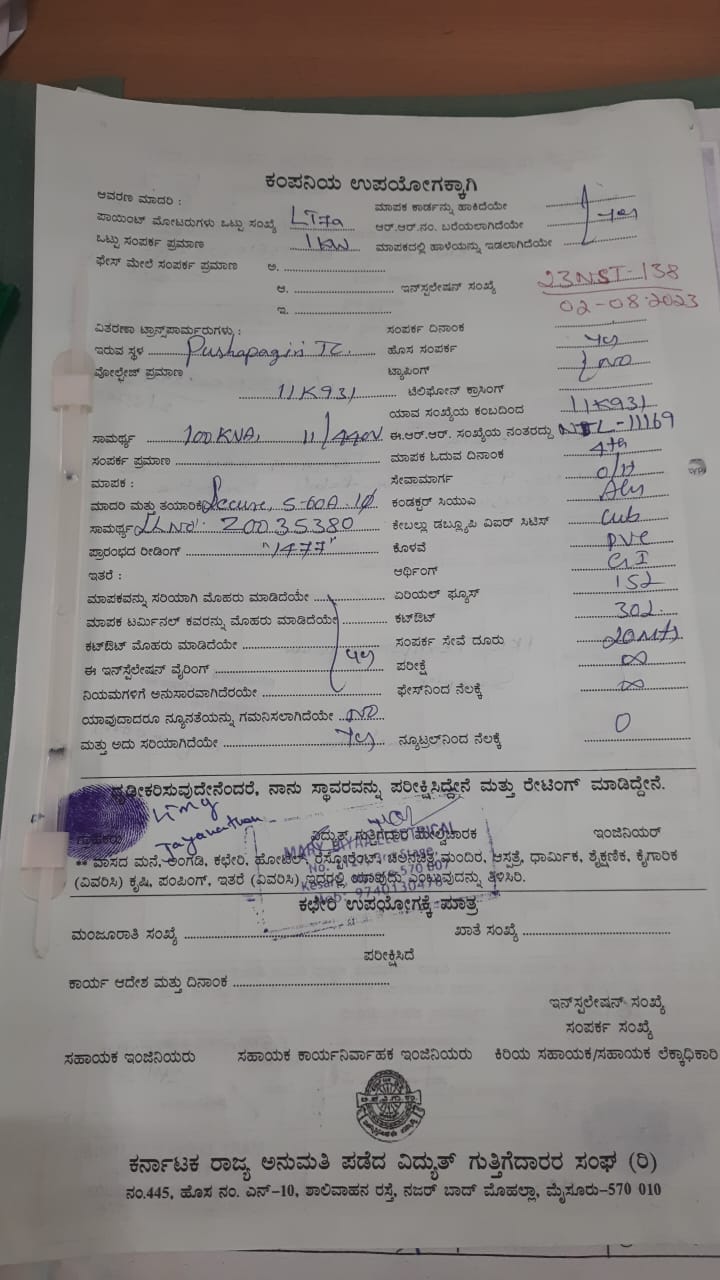 ಕಂಪನಿಯ ಉಪಯೋಗಕ್ಕಾಗಿ
ಆವರಣ ಮಾದರಿ :
ಮಾಪಕ ಕಾರ್ಡನ್ನು ಹಾಕಿದೆಯೇ
ಪಾಯಿಂಟ್ ಮೋಟರುಗಳು ಒಟ್ಟು ಸಂಖ್ಯೆ LT7a
ಆರ್.ಆರ್.ನಂ. ಬರೆಯಲಾಗಿದೆಯೇ yes
ಒಟ್ಟು ಸಂಪರ್ಕ ಪ್ರಮಾಣ 1KW
ಮಾಪಕದಲ್ಲಿ ಹಾಳೆಯನ್ನು ಇಡಲಾಗಿದೆಯೇ
ಫೇಸ್ ಮೇಲೆ ಸಂಪರ್ಕ ಪ್ರಮಾಣ ಅ.
ಆ. ಇನ್‌ಸ್ಟಲೇಷನ್ ಸಂಖ್ಯೆ 23NST-138
02-08-2023
ಇ.
ವಿತರಣಾ ಟ್ರಾನ್ಸ್‌ಪಾರ್ಮರುಗಳು :
ಸಂಪರ್ಕ ದಿನಾಂಕ
ಇರುವ ಸ್ಥಳ Pushapagiri TC.
ಹೊಸ ಸಂಪರ್ಕ yes
ವೋಲ್ಟೇಜ್ ಪ್ರಮಾಣ
ಟ್ಯಾಪಿಂಗ್ NO
11K931
ಟೆಲಿಫೋನ್ ಕ್ರಾಸಿಂಗ್
ಯಾವ ಸಂಖ್ಯೆಯ ಕಂಬದಿಂದ 11K931
ಸಾಮರ್ಥ್ಯ 100KVA, 11/440V
ಈ.ಆರ್.ಆರ್. ಸಂಖ್ಯೆಯ ನಂತರದ್ದು -11169
ಸಂಪರ್ಕ ಪ್ರಮಾಣ
ಮಾಪಕ ಓದುವ ದಿನಾಂಕ 4th
ಮಾಪಕ :
ಸೇವಾಮಾರ್ಗ O/H
ಮಾದರಿ ಮತ್ತು ತಯಾರಿಕೆ Secure, 5-60A 1ϕ
ಕಂಡಕ್ಟರ್ ಸಿಯುಎ
ಸಾಮರ್ಥ್ಯ 20035380
ಕೇಬಲ್ಲು ಡಬ್ಲ್ಯೂಪಿ ವಿಐರ್ ಸಿಟಿಸ್ Cub
ಪ್ರಾರಂಭದ ರೀಡಿಂಗ್ "1477"
ಕೊಳವೆ PVC
ಇತರೆ :
ಆರ್ಥಿಂಗ್ GI
ಮಾಪಕವನ್ನು ಸರಿಯಾಗಿ ಮೊಹರು ಮಾಡಿದೆಯೇ
ಏರಿಯಲ್ ಫ್ಯೂಸ್ 152
ಮಾಪಕ ಟರ್ಮಿನಲ್ ಕವರನ್ನು ಮೊಹರು ಮಾಡಿದೆಯೇ
ಕಟ್‌ಔಟ್ 302.
ಕಟ್‌ಔಟ್ ಮೊಹರು ಮಾಡಿದೆಯೇ
ಸಂಪರ್ಕ ಸೇವೆ ದೂರು 20Mts
ಈ ಇನ್‌ಸ್ಟೆಲೇಷನ್ ವೈರಿಂಗ್ yes
ಪರೀಕ್ಷೆ ∞
ನಿಯಮಗಳಿಗೆ ಅನುಸಾರವಾಗಿದೆರಯೇ
ಫೇಸ್‌ನಿಂದ ನೆಲಕ್ಕೆ ∞
ಯಾವುದಾದರೂ ನ್ಯೂನತೆಯನ್ನು ಗಮನಿಸಲಾಗಿದೆಯೇ NO
ಮತ್ತು ಅದು ಸರಿಯಾಗಿದೆಯೇ Yes
ನ್ಯೂಟ್ರಲ್‌ನಿಂದ ನೆಲಕ್ಕೆ 0
ದೃಢೀಕರಿಸುವುದೇನೆಂದರೆ, ನಾನು ಸ್ಥಾವರವನ್ನು ಪರೀಕ್ಷಿಸಿದ್ದೇನೆ ಮತ್ತು ರೇಟಿಂಗ್ ಮಾಡಿದ್ದೇನೆ.
LTMg
ಗ್ರಾಹಕರು
ವಿದ್ಯುತ್ ಗುತ್ತಿಗೆದಾರ ಮೇಲ್ವಿಚಾರಕ
ಇಂಜಿನಿಯರ್
** ವಾಸದ ಮನೆ, ಅಂಗಡಿ, ಕಛೇರಿ, ಹೋಟೆಲ್, ರೆಸ್ಟೋರೆಂಟ್, ಚಲನಚಿತ್ರ ಮಂದಿರ, ಆಸ್ಪತ್ರೆ, ಧಾರ್ಮಿಕ, ಶೈಕ್ಷಣಿಕ, ಕೈಗಾರಿಕೆ
(ವಿವರಿಸಿ) ಕೃಷಿ, ಪಂಪಿಂಗ್, ಇತರೆ (ವಿವರಿಸಿ) ಇದರಲ್ಲಿ ಯಾವುದು ಎಂಬುವುದನ್ನು ತಿಳಿಸಿರಿ.
ಕಛೇರಿ ಉಪಯೋಗಕ್ಕೆ ಮಾತ್ರ
ಮಂಜೂರಾತಿ ಸಂಖ್ಯೆ
ಖಾತೆ ಸಂಖ್ಯೆ
ಪರೀಕ್ಷಿಸಿದೆ
ಕಾರ್ಯ ಆದೇಶ ಮತ್ತು ದಿನಾಂಕ
ಇನ್‌ಸ್ಟಲೇಷನ್ ಸಂಖ್ಯೆ
ಸಂಪರ್ಕ ಸಂಖ್ಯೆ
ಸಹಾಯಕ ಇಂಜಿನಿಯರು
ಸಹಾಯಕ ಕಾರ್ಯನಿರ್ವಾಹಕ ಇಂಜಿನಿಯರು
ಕಿರಿಯ ಸಹಾಯಕ/ಸಹಾಯಕ ಲೆಕ್ಕಾಧಿಕಾರಿ
ಕರ್ನಾಟಕ ರಾಜ್ಯ ಅನುಮತಿ ಪಡೆದ ವಿದ್ಯುತ್ ಗುತ್ತಿಗೆದಾರರ ಸಂಘ (ರಿ)
ನಂ.445, ಹೊಸ ನಂ. ಎನ್-10, ಶಾಲಿವಾಹನ ರಸ್ತೆ, ನಜರ್ ಬಾದ್ ಮೊಹಲ್ಲಾ, ಮೈಸೂರು-570 010